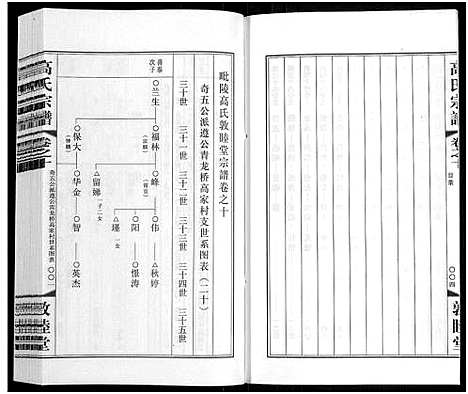 高氏宗譜
卷之十
〇〇四
敦睦堂
毗陵高氏敦睦堂宗譜卷之十
奇五公派遵公青龙桥高家村支世系图表（二十）
三十世 三十一世 三十二世 三十三世 三十四世 三十五世
次子
兰生
福林
峰
伟
秋婷
阳
憬涛
瑾
一女
留娣
一子二女
保大
华金
智
英杰
高氏宗譜
卷之十
奇五公派遵公青龙桥高家村支世系图表
〇〇一
敦睦堂